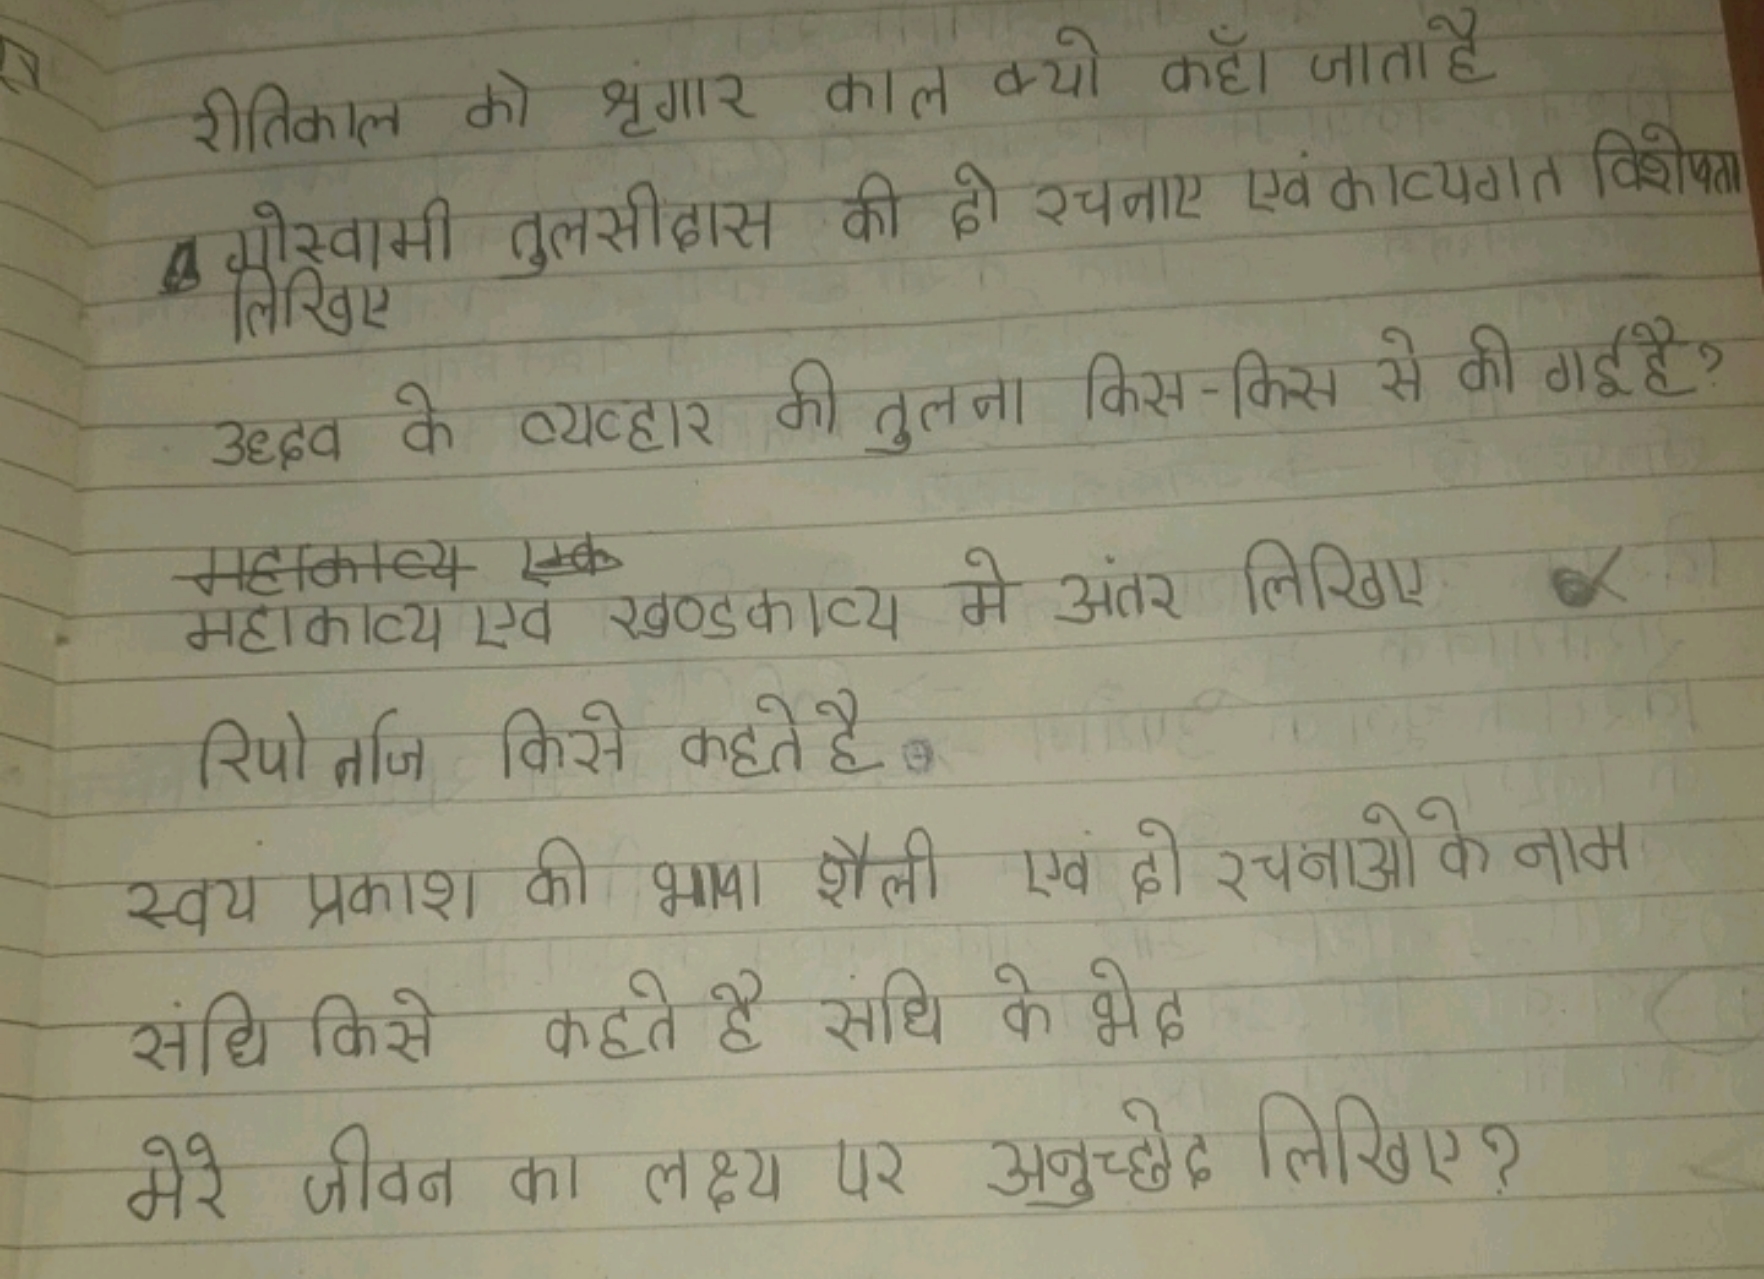 रीतिकाल को श्रृंगार काल क्यो कहाँ जाता है
गोस्वामी तुलसीदास की दो रचनाए एवं काव्यगत विशेषता
लिखिए
उद्धव के व्यव्हार की तुलना किस-किस से की गई है?
महाकाव्य एक
महाकाव्य एव खण्डकाव्य मे अंतर लिखिए
रिपोर्ताज किसे कहते है
स्वय प्रकाश की भाषा शैली एवं दो रचनाओ के नाम
संधि किसे कहते है संधि के भेद
मेरे जीवन का लक्ष्य पर अनुच्छेद लिखिए?